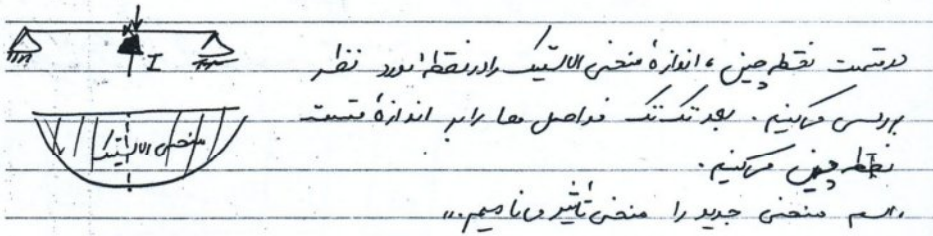 I
منحنی الاستیک
در قسمت نقطه چین، اندازهٔ منحنی الاستیک را در نقطهٔ مورد نظر
بررسی می‌کنیم. بعد تک تک فواصل ها را بر اندازهٔ قسمت
نقطه چین می‌کنیم.
اسم منحنی جدید را منحنی تأثیر می‌نامیم...